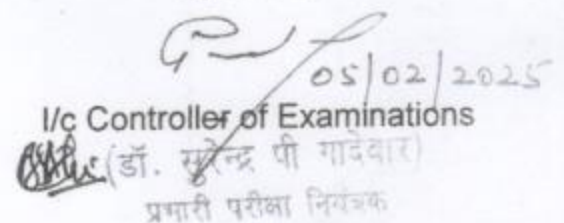 05/02/2025
I/c Controller of Examinations
(डॉ. सुरेन्द्र पी गादेवार)
प्रभारी परीक्षा नियंत्रक